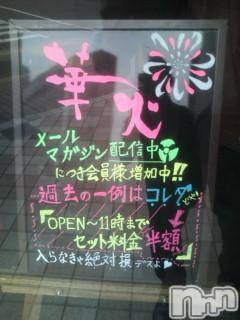 華火
メール
マガジン配信中
につき会員様増加中!!
過去の一例はコレ
どーん
『OPEN〜11時まで
セット料金半額』
入らなきゃ絶対損デスよ